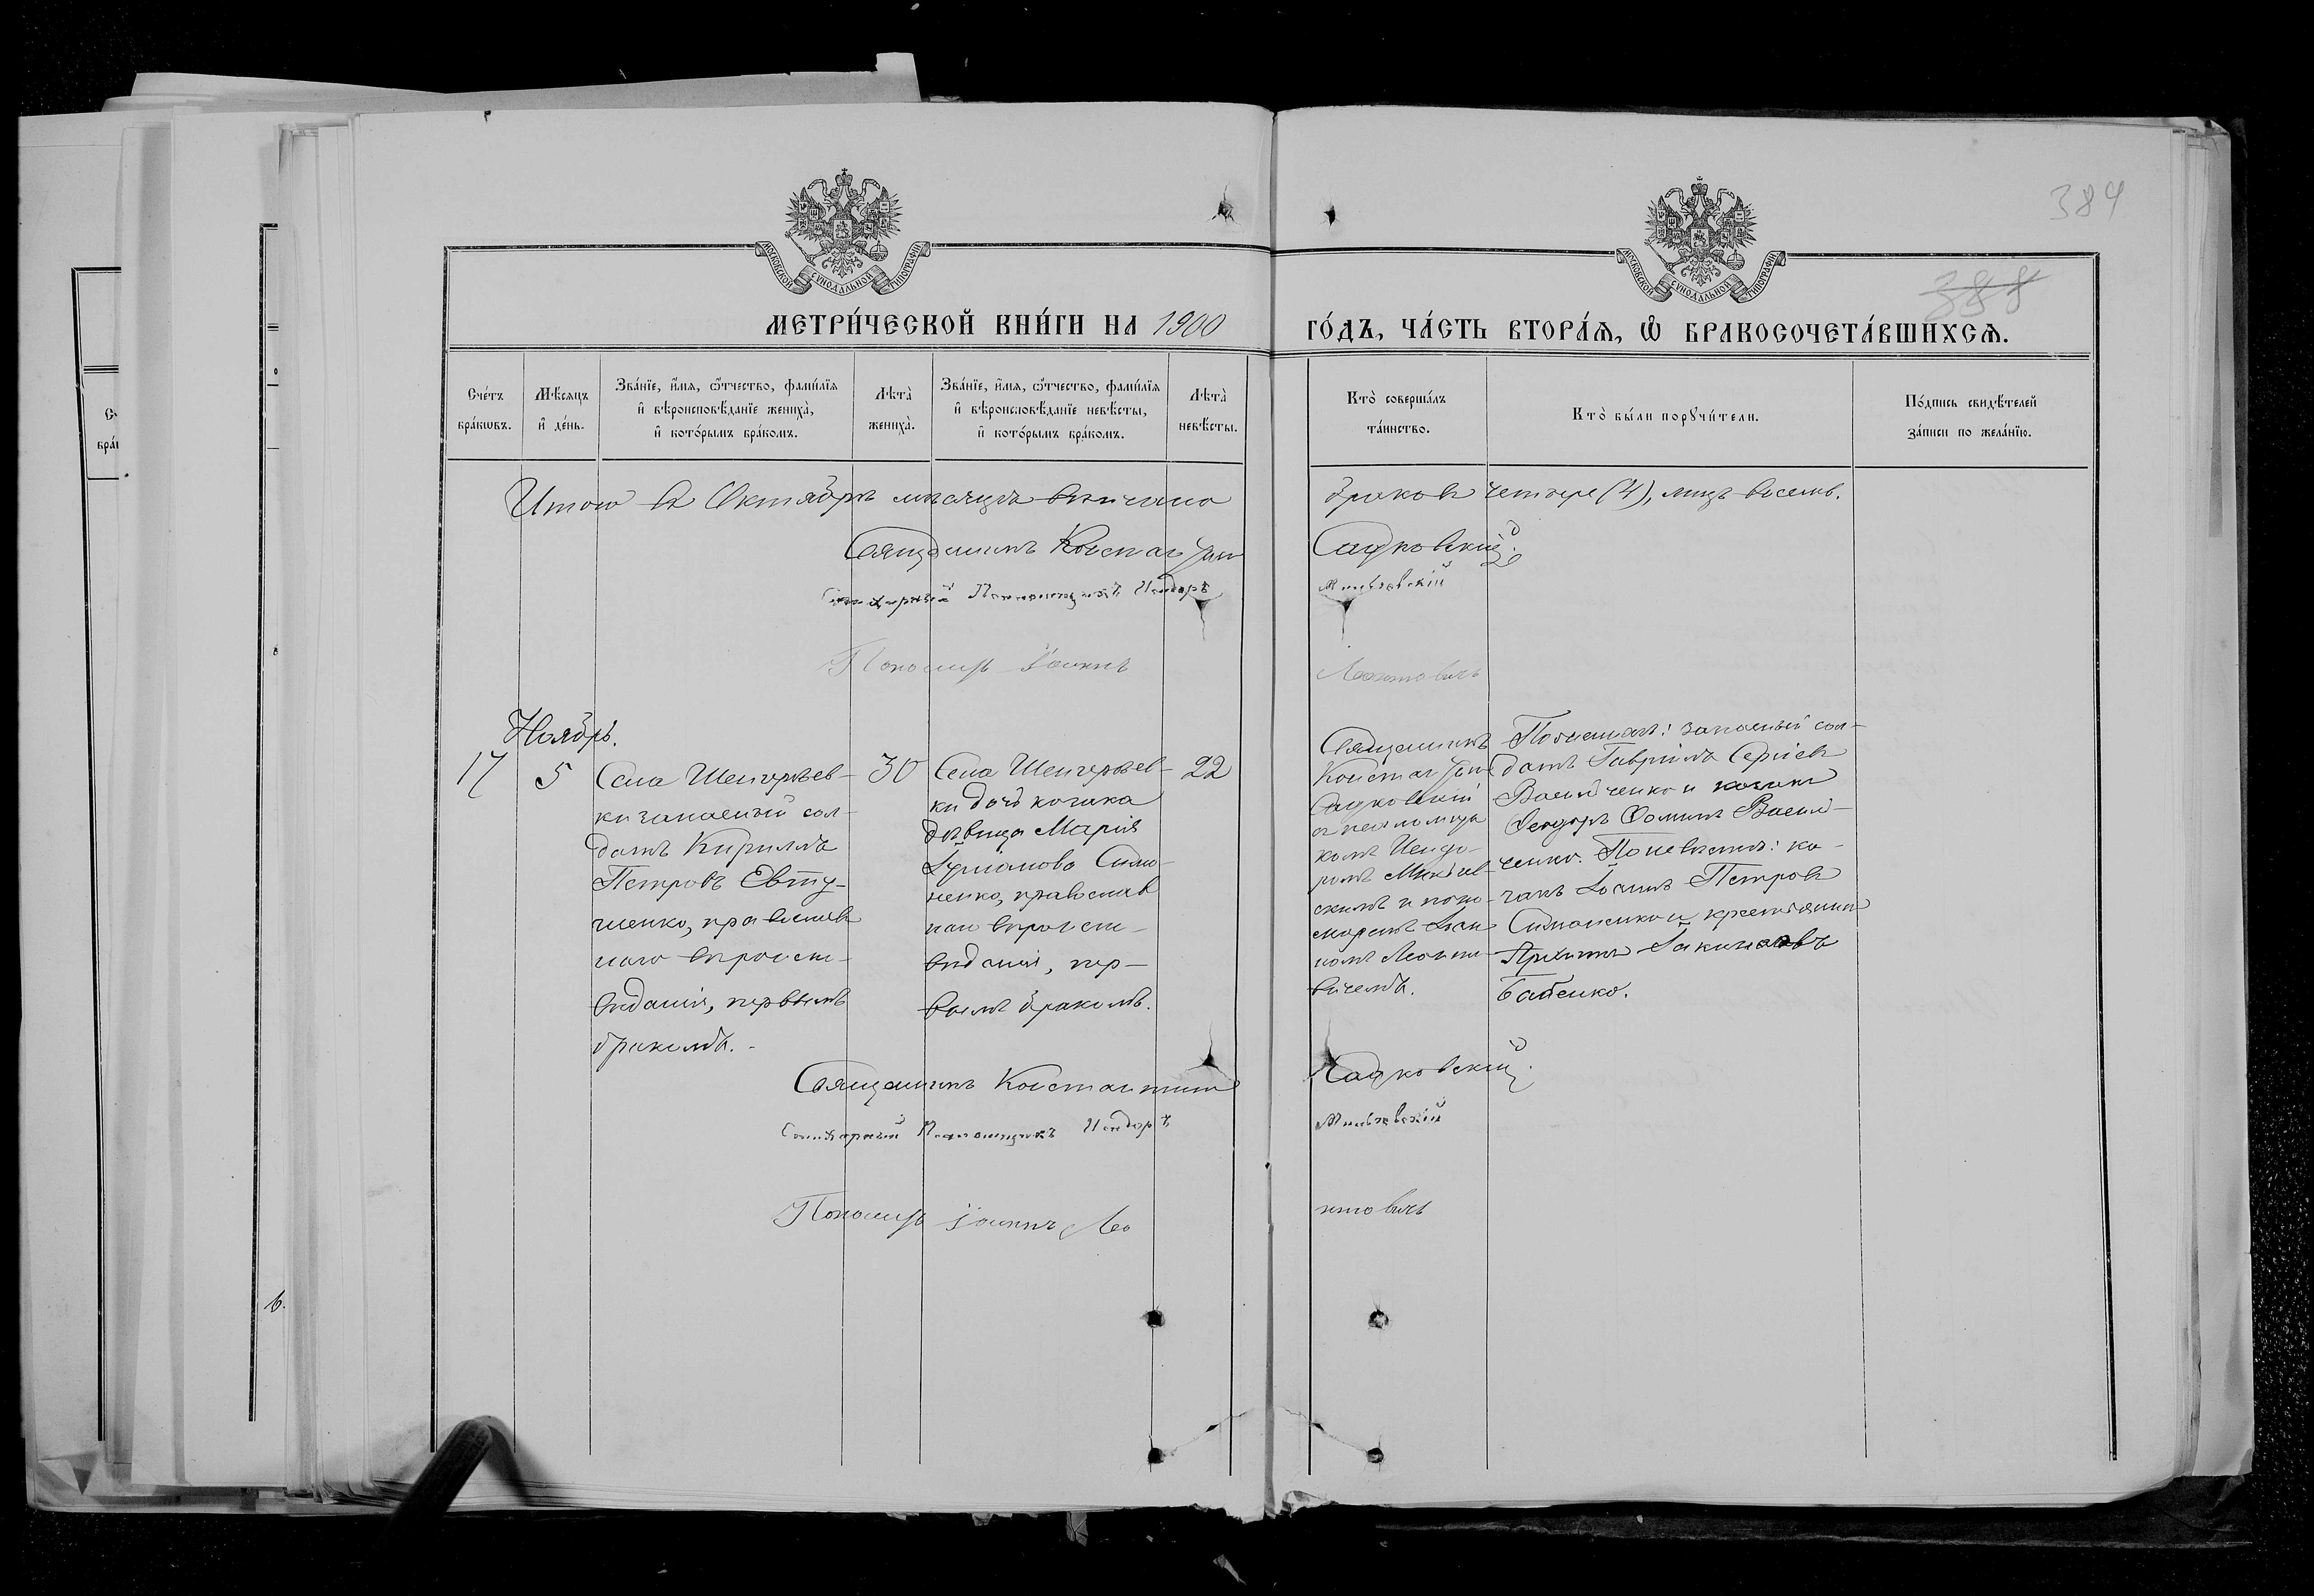 384
388
МОСКОВСКОЙ СУНОДАЛЬНОЙ ТИПОГРАФІИ
МОСКОВСКОЙ СУНОДАЛЬНОЙ ТИПОГРАФІИ
МЕТРИ́ЧЕСКОЙ КНИ́ГИ НА 1900 ГО́ДЪ, ЧА́СТЬ ВТОРА́Ѧ, Ѡ҆ БРАКОСОЧЕТА́ВШИХСѦ.
Сче́тъ бра́кѡвъ.
Мѣ́сѧцъ и҆ де́нь.
Зва́нїе, и҆́мѧ, ѻ҆́тчество, фами́лїѧ и҆ вѣроисповѣ́данїе жениха̀, и҆ кото́рымъ бра́комъ.
Лѣта̀ жениха̀.
Зва́нїе, и҆́мѧ, ѻ҆́тчество, фами́лїѧ и҆ вѣроисповѣ́данїе невѣ́сты, и҆ кото́рымъ бра́комъ.
Лѣта̀ невѣ́сты.
Кто̀ соверша́лъ та́инство.
Кто̀ бы́ли порꙋчи́тели.
По́дпись свидѣ́телей за́писи по жела́нїю.
Итого въ Октябрѣ мѣсяцѣ вѣнчано браковъ четыре (4), лицъ восемь.
Священникъ Константинъ Садковскій.
Псаломщикъ Исидоръ
Пономарь Іоаннъ Леонтовичъ
Ноябрь.
17
5
Села Шенгерѣев-
ки запасный сол-
датъ Кириллъ
Петровъ Евту-
шенко, православ
наго вѣроиспо-
вѣданія, первымъ
бракомъ.
30
Села Шенгерѣев-
ки дочь козака
дѣвица Марія
Симо-
ненко, православ
наго вѣроиспо-
вѣданія, пер-
вымъ бракомъ.
22
Священникъ
Константинъ
Садковскій
съ псаломщи
комъ Исидо-
ромъ
скимъ и поно-
маремъ Іоан
номъ Леонто-
вичемъ.
По женихѣ: запасный сол-
датъ Гавріилъ Сергіевъ
Васильченко и козакъ
Феодоръ Фоминъ Василь-
ченко. По невѣстѣ: ко-
закъ Іоаннъ Петровъ
Симоненко и крестьянинъ
Бабенко.
Священникъ Константинъ Садковскій.
Псаломщикъ Исидоръ
Пономарь Іоаннъ Леонтовичъ